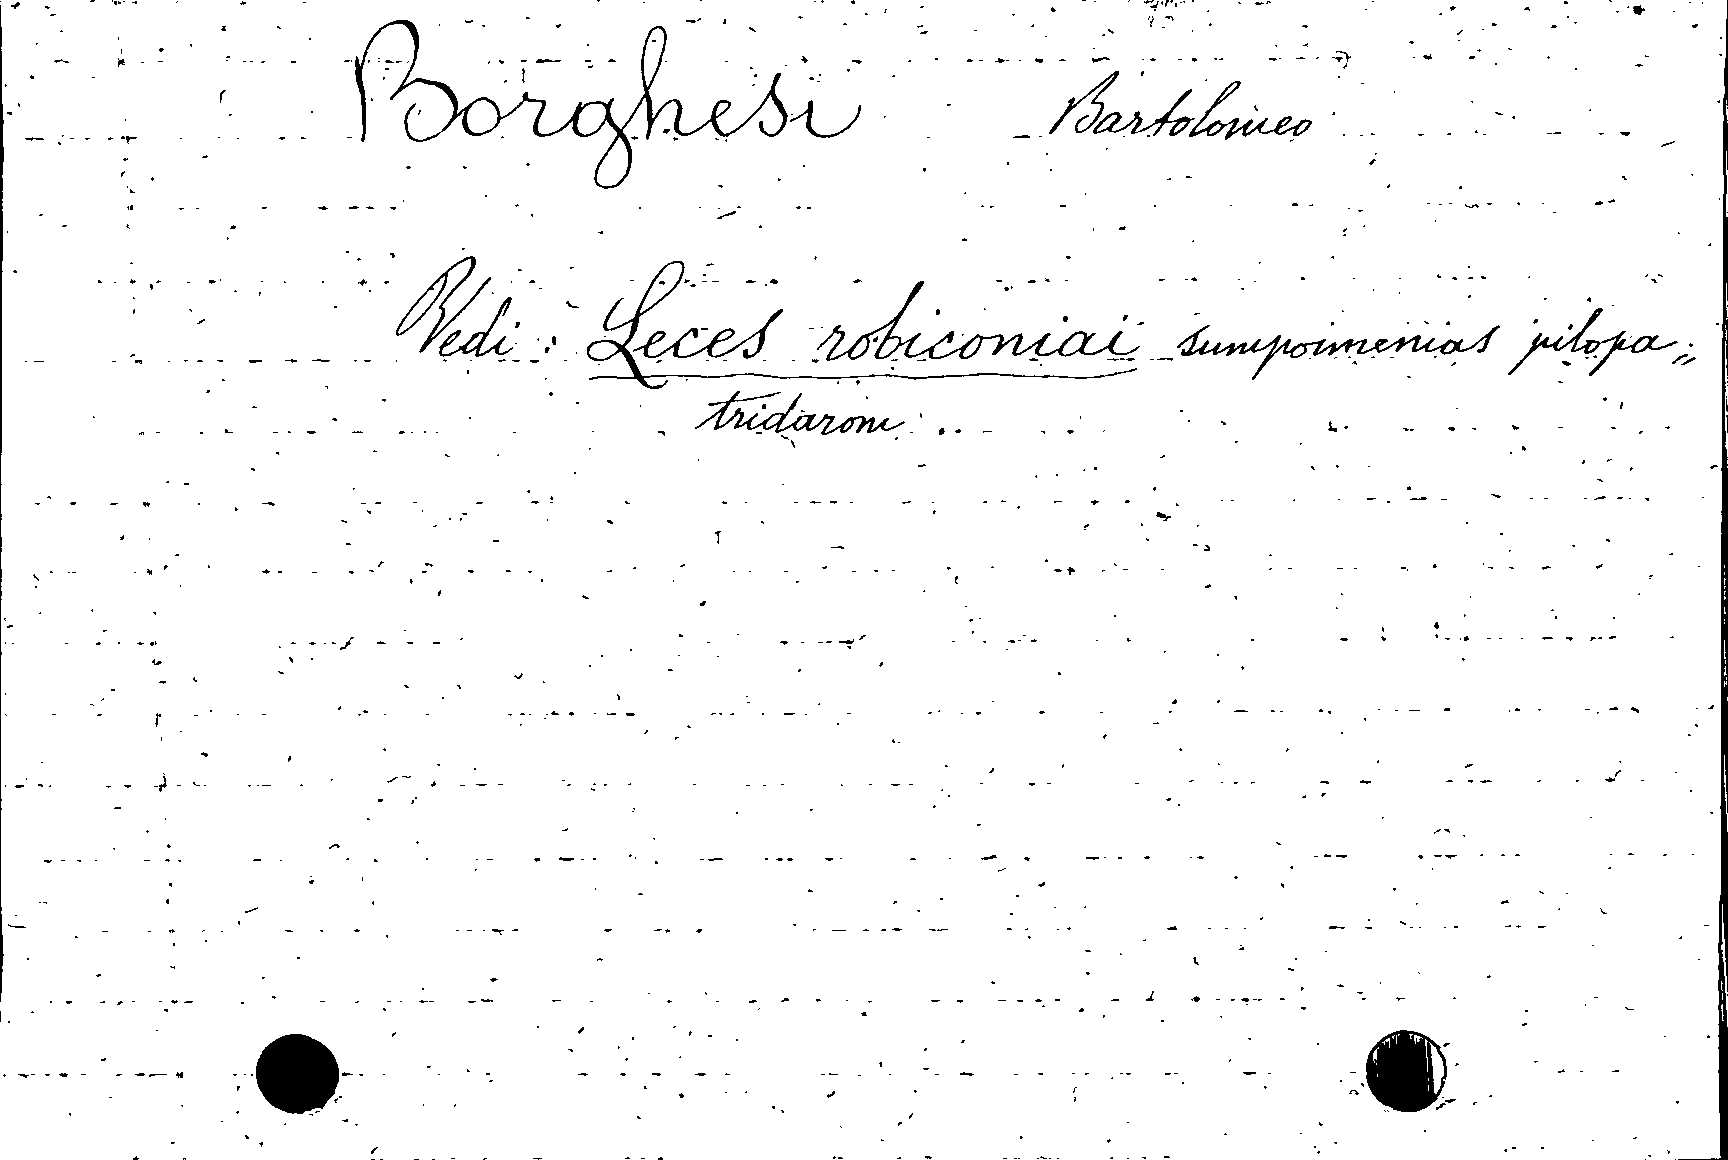 Borghesi Bartolomeo
Vedi: Leces robiconiai sumpoimenias pilopa=
tridarom ..